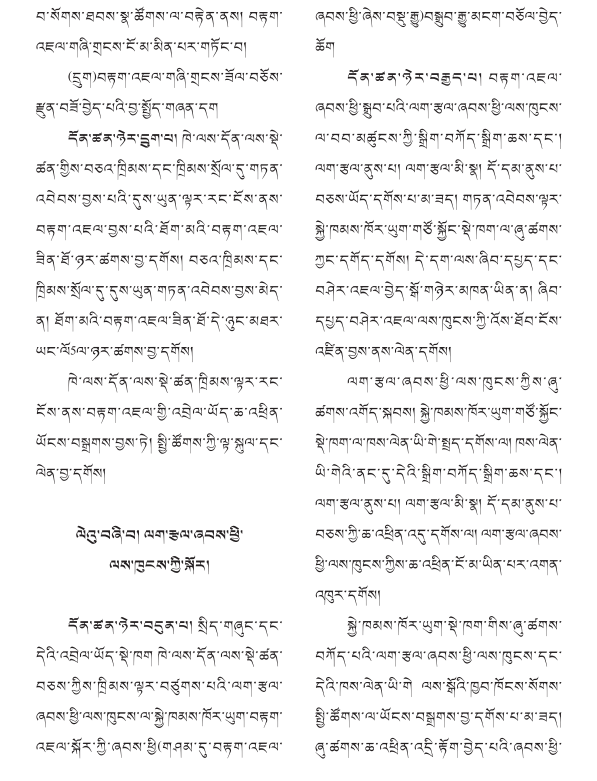 བ་སོགས་ཐབས་སྣ་ཚོགས་ལ་བརྟེན་ནས། བརྟག་
འཇལ་གཞི་གྲངས་ངོ་མ་མིན་པར་གཏོང་བ།
(དྲུག)བརྟག་འཇལ་གཞི་གྲངས་ཟོལ་བཅོས་
རྫུན་བཟོ་བྱེད་པའི་བྱ་སྤྱོད་གཞན་དག
དོན་ཚན་ཉེར་དྲུག་པ། ཁེ་ལས་དོན་ལས་སྡེ་
ཚན་གྱིས་བཅའ་ཁྲིམས་དང་ཁྲིམས་སྲོལ་དུ་གཏན་
འབེབས་བྱས་པའི་དུས་ཡུན་ལྟར་རང་ངོས་ནས་
བརྟག་འཇལ་བྱས་པའི་ཐོག་མའི་བརྟག་འཇལ་
ཟིན་ཐོ་ཉར་ཚགས་བྱ་དགོས། བཅའ་ཁྲིམས་དང་
ཁྲིམས་སྲོལ་དུ་དུས་ཡུན་གཏན་འབེབས་བྱས་མེད་
ན། ཐོག་མའི་བརྟག་འཇལ་ཟིན་ཐོ་དེ་ཉུང་མཐར་
ཡང་ལོ5ལ་ཉར་ཚགས་བྱ་དགོས།
ཁེ་ལས་དོན་ལས་སྡེ་ཚན་ཁྲིམས་ལྟར་རང་
ངོས་ནས་བརྟག་འཇལ་གྱི་འབྲེལ་ཡོད་ཆ་འཕྲིན་
ཡོངས་བསྒྲགས་བྱས་ཏེ། སྤྱི་ཚོགས་ཀྱི་ལྟ་སྐུལ་དང་
ལེན་བྱ་དགོས།
ལེའུ་བཞི་བ། ལག་རྩལ་ཞབས་ཕྱི་
ལས་ཁུངས་ཀྱི་སྐོར།
དོན་ཚན་ཉེར་བདུན་པ། སྲིད་གཞུང་དང་
དེའི་འབྲེལ་ཡོད་སྡེ་ཁག ཁེ་ལས་དོན་ལས་སྡེ་ཚན་
བཅས་ཀྱིས་ཁྲིམས་ལྟར་བཙུགས་པའི་ལག་རྩལ་
ཞབས་ཕྱི་ལས་ཁུངས་ལ་སྐྱེ་ཁམས་ཁོར་ཡུག་བརྟག་
འཇལ་སྐོར་ཀྱི་ཞབས་ཕྱི(གཤམ་དུ་བརྟག་འཇལ་
ཞབས་ཕྱི་ཞེས་བསྡུ་རྒྱུ)བསྒྲུབ་རྒྱུ་མངག་བཅོལ་བྱེད་
ཆོག
དོན་ཚན་ཉེར་བརྒྱད་པ། བརྟག་འཇལ་
ཞབས་ཕྱི་སྒྲུབ་པའི་ལག་རྩལ་ཞབས་ཕྱི་ལས་ཁུངས་
ལ་བབ་མཚུངས་ཀྱི་སྒྲིག་བཀོད་སྒྲིག་ཆས་དང་།
ལག་རྩལ་ནུས་པ། ལག་རྩལ་མི་སྣ། དོ་དམ་ནུས་པ་
བཅས་ཡོད་དགོས་པ་མ་ཟད། གཏན་འབེབས་ལྟར་
སྐྱེ་ཁམས་ཁོར་ཡུག་གཙོ་སྐྱོང་སྡེ་ཁག་ལ་ཞུ་ཚགས་
ཀྱང་དགོད་དགོས། དེ་དག་ལས་ཞིབ་དཔྱད་དང་
བཤེར་འཇལ་བྱེད་སྒོ་གཉེར་མཁན་ཡིན་ན། ཞིབ་
དཔྱད་བཤེར་འཇལ་ལས་ཁུངས་ཀྱི་འོས་ཐོབ་ངོས་
འཛིན་བྱས་ནས་ལེན་དགོས།
ལག་རྩལ་ཞབས་ཕྱི་ལས་ཁུངས་ཀྱིས་ཞུ་
ཚགས་འགོད་སྐབས། སྐྱེ་ཁམས་ཁོར་ཡུག་གཙོ་སྐྱོང་
སྡེ་ཁག་ལ་ཁས་ལེན་ཡི་གེ་སྤྲད་དགོས་ལ། ཁས་ལེན་
ཡི་གེའི་ནང་དུ་དེའི་སྒྲིག་བཀོད་སྒྲིག་ཆས་དང་།
ལག་རྩལ་ནུས་པ། ལག་རྩལ་མི་སྣ། དོ་དམ་ནུས་པ་
བཅས་ཀྱི་ཆ་འཕྲིན་འདུ་དགོས་ལ། ལག་རྩལ་ཞབས་
ཕྱི་ལས་ཁུངས་ཀྱིས་ཆ་འཕྲིན་ངོ་མ་ཡིན་པར་འགན་
འཁུར་དགོས།
སྐྱེ་ཁམས་ཁོར་ཡུག་སྡེ་ཁག་གིས་ཞུ་ཚགས་
བཀོད་པའི་ལག་རྩལ་ཞབས་ཕྱི་ལས་ཁུངས་དང་
དེའི་ཁས་ལེན་ཡི་གེ ལས་སྒོའི་ཁྱབ་ཁོངས་སོགས་
སྤྱི་ཚོགས་ལ་ཡོངས་བསྒྲགས་བྱ་དགོས་པ་མ་ཟད།
ཞུ་ཚགས་ཆ་འཕྲིན་འདྲི་རྟོག་བྱེད་པའི་ཞབས་ཕྱི་